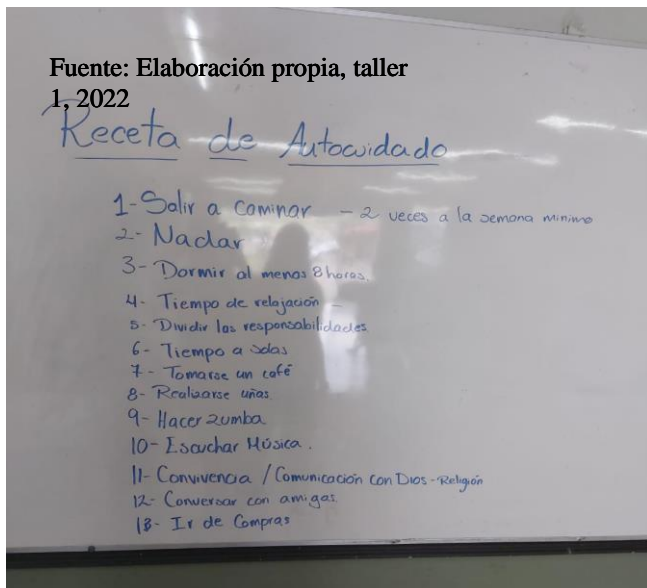 Fuente: Elaboración propia, taller
1, 2022
Receta de Autocuidado
1- Salir a Caminar - 2 veces a la semana minimo
2- Nadar
3- Dormir al menos 8 horas.
4- Tiempo de relajación -
5- Dividir las responsabilidades
6- Tiempo a solas
7- Tomarse un café
8- Realizarse uñas
9- Hacer zumba
10- Escuchar Música.
11- Convivencia / Comunicación con Dios - Religión
12- Conversar con amigas.
13- Ir de Compras